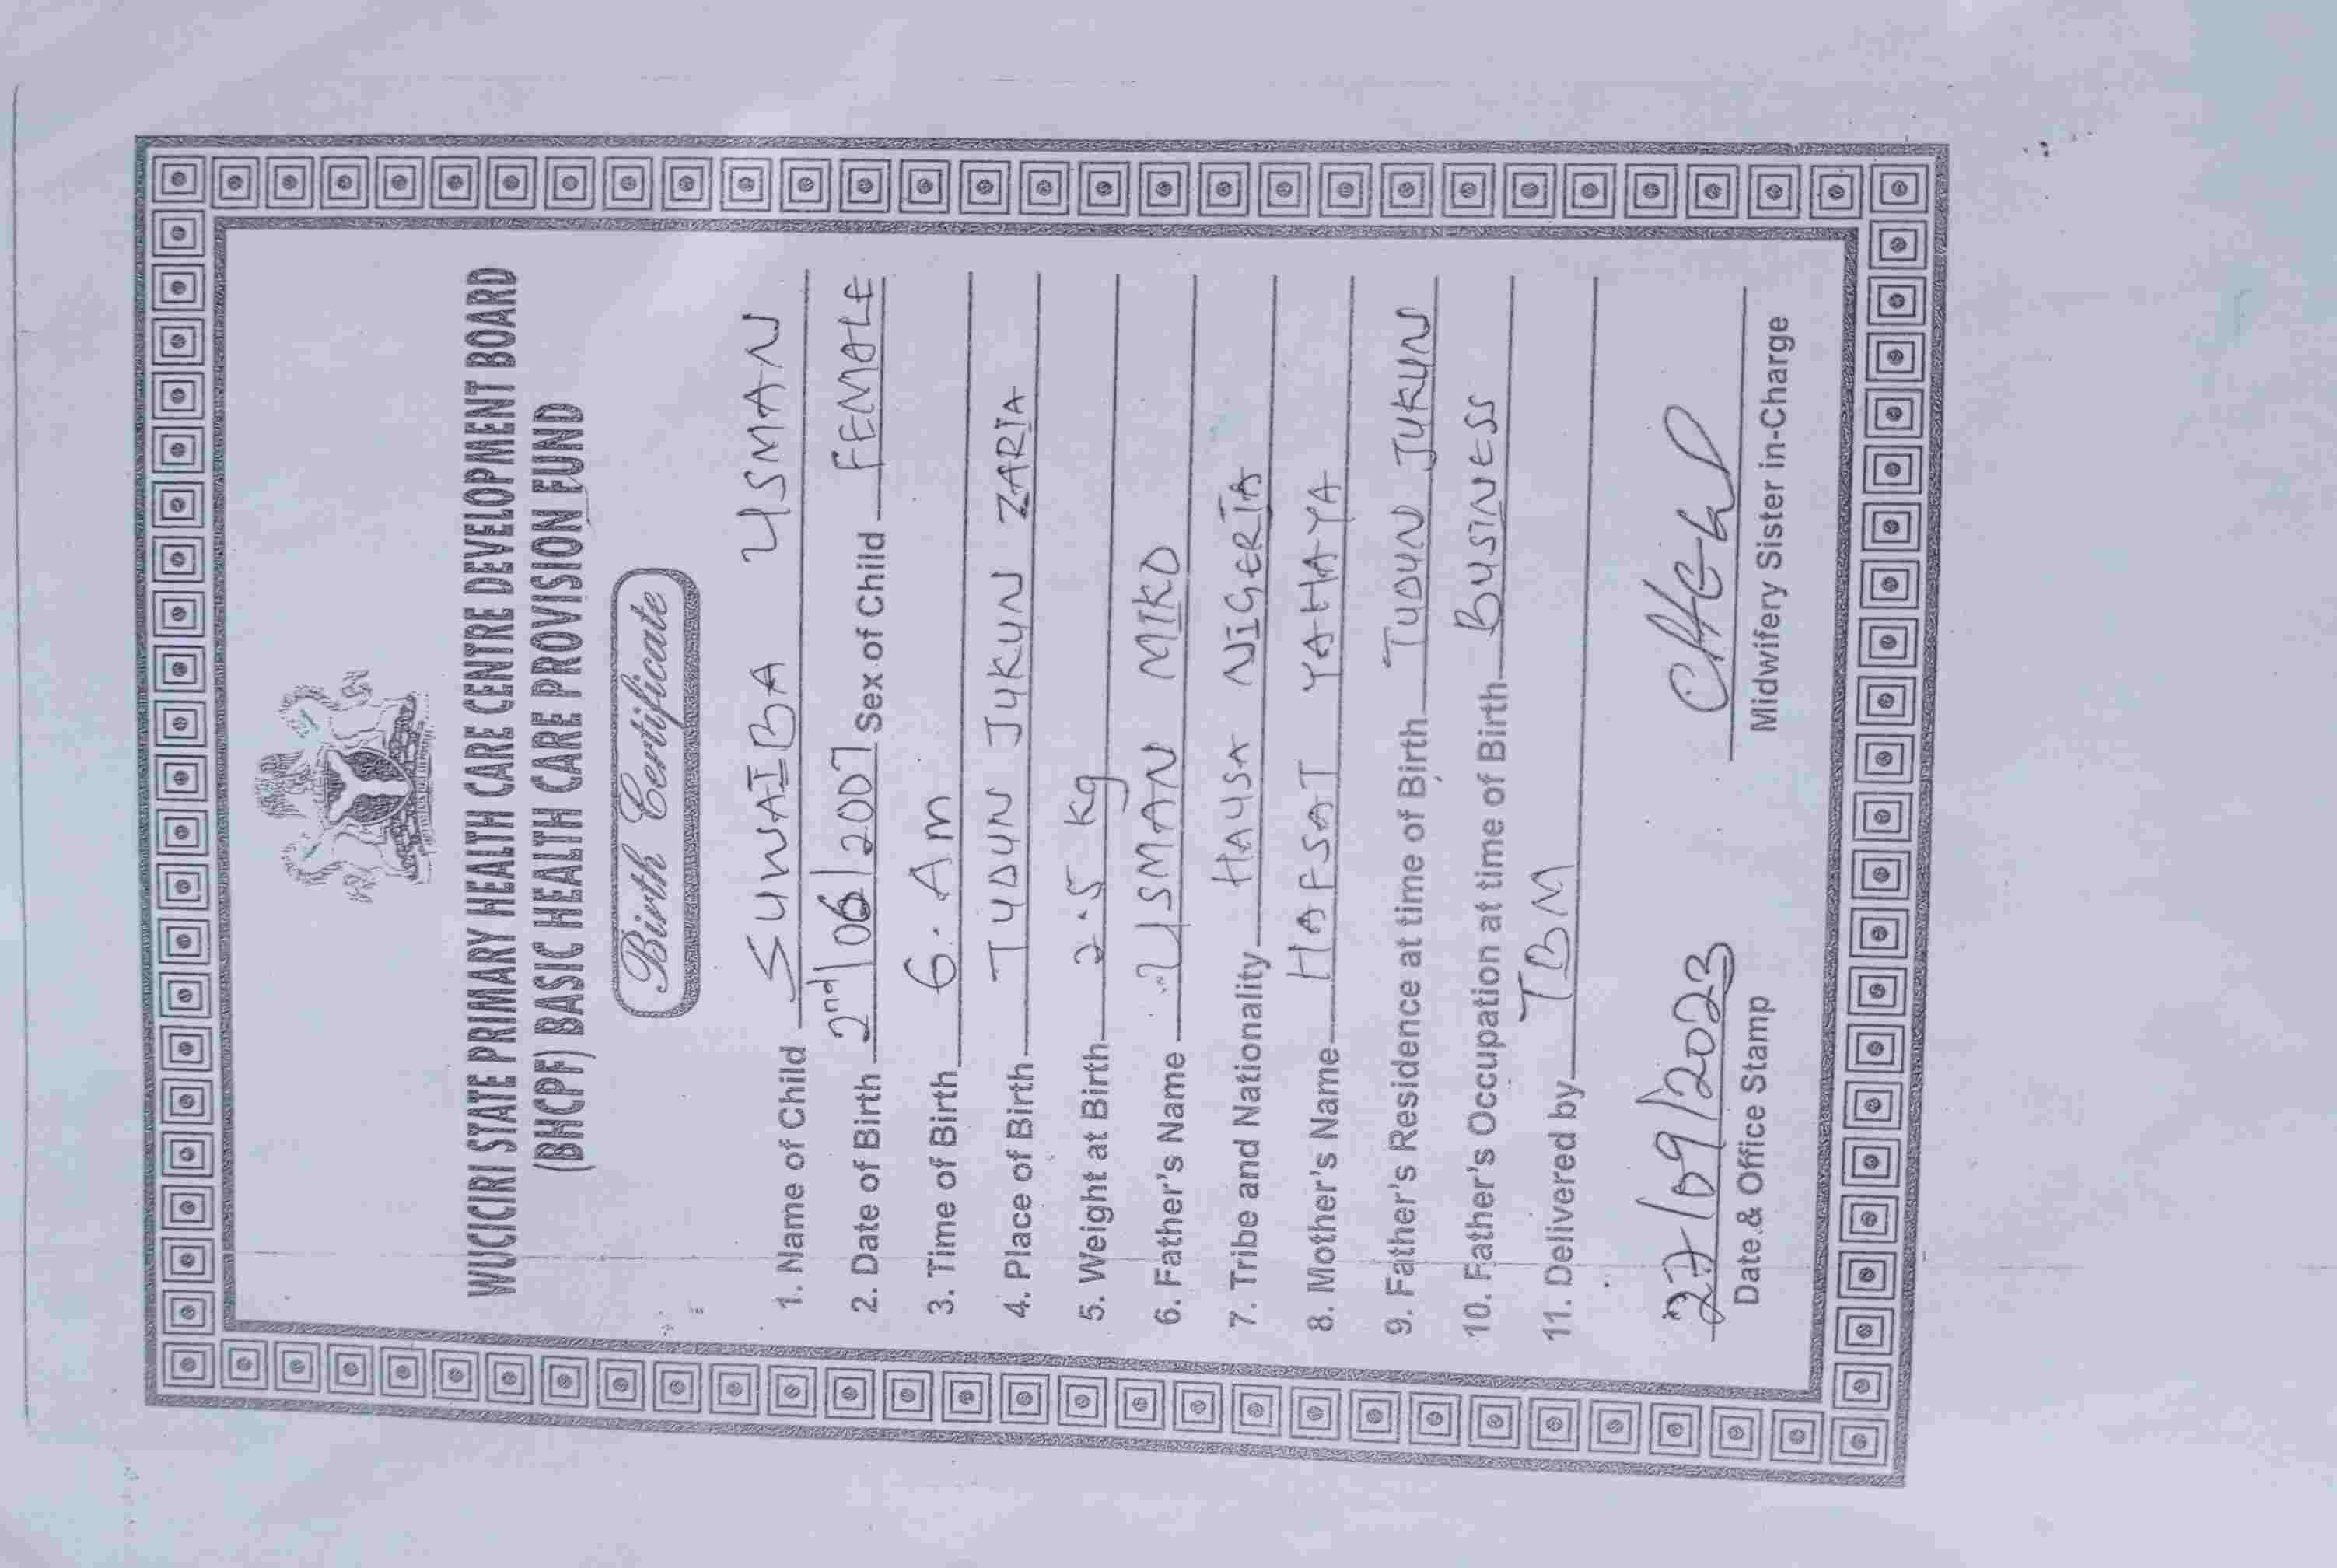 WUCICIRI STATE PRIMARY HEALTH CARE CENTRE DEVELOPMENT BOARD
(BHCPF) BASIC HEALTH CARE PROVISION FUND
Birth Certificate
1. Name of Child SUWAIBA USMAN
2. Date of Birth 2nd/06/2007 Sex of Child FEMALE
3. Time of Birth 6.Am
4. Place of Birth TUDUN JUKUN ZARIA
5. Weight at Birth 2.5 kg
6. Father's Name USMAN MIKO
7. Tribe and Nationality HAUSA NIGERIA
8. Mother's Name HAFSAT YAHAYA
9. Father's Residence at time of Birth TUDUN JUKUN
10. Father's Occupation at time of Birth BUSINESS
11. Delivered by TBM
27/09/2023
Date & Office Stamp Midwifery Sister in-Charge